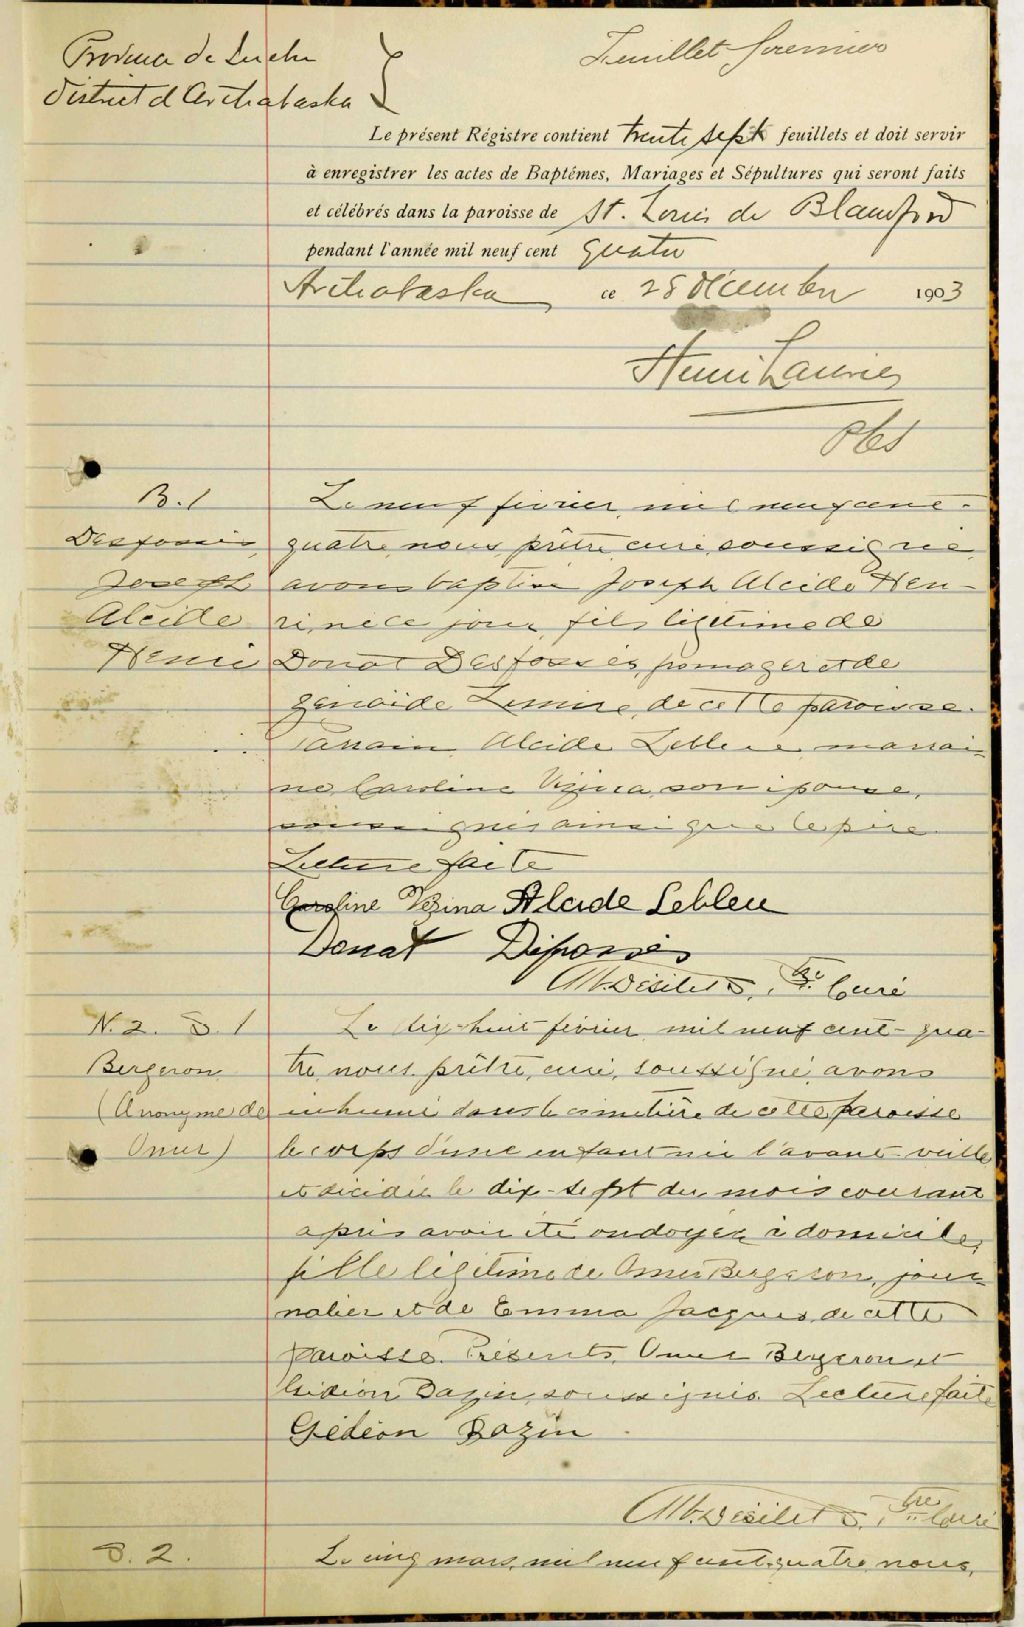 Province de Quebec
District d'Arthabaska
Feuillet premier
Le présent Régistre contient trente sept feuillets et doit servir
à enregistrer les actes de Baptêmes, Mariages et Sépultures qui seront faits
et célébrés dans la paroisse de St. Louis de Blandford
pendant l'année mil neuf cent quatre
Arthabaska ce 28 Décembre 1903
Henri Laurier
B. 1
Desfossés,
Joseph
Alcide
Henri
Le neuf février mil neuf cent-
quatre, nous, prêtre, curé, soussigné,
avons baptisé Joseph Alcide Hen-
ri, né ce jour, fils légitime de
Donat Desfossés, fromager et de
Lemire, de cette paroisse.
Parrain Alcide Lebleu marrai-
ne, Caroline Vézina, son épouse,
soussignés ainsi que le père.
Lecture faite
Caroline Vézina Alcide Lebleu
Donat Défossés
Alb. Désilets, Ptre Curé
N. 2. S. 1
Bergeron
(Anonyme de
Omer)
Le dix-huit février mil neuf cent-qua-
tre, nous, prêtre, curé, soussigné, avons
inhumé dans le cimetière de cette paroisse
le corps d'une enfant née l'avant-veille
et décédée le dix-sept du mois courant
après avoir été ondoyée à domicile,
fille légitime de Omer Bergeron, jour-
nalier et de Emma Jacques, de cette
paroisse. Présents, Omer Bergeron et
Gédéon Bazin, soussignés. Lecture faite
Gédéon Bazin
Alb. Désilets, Ptre Curé
S. 2.
Le cinq mars, mil neuf cent-quatre, nous,